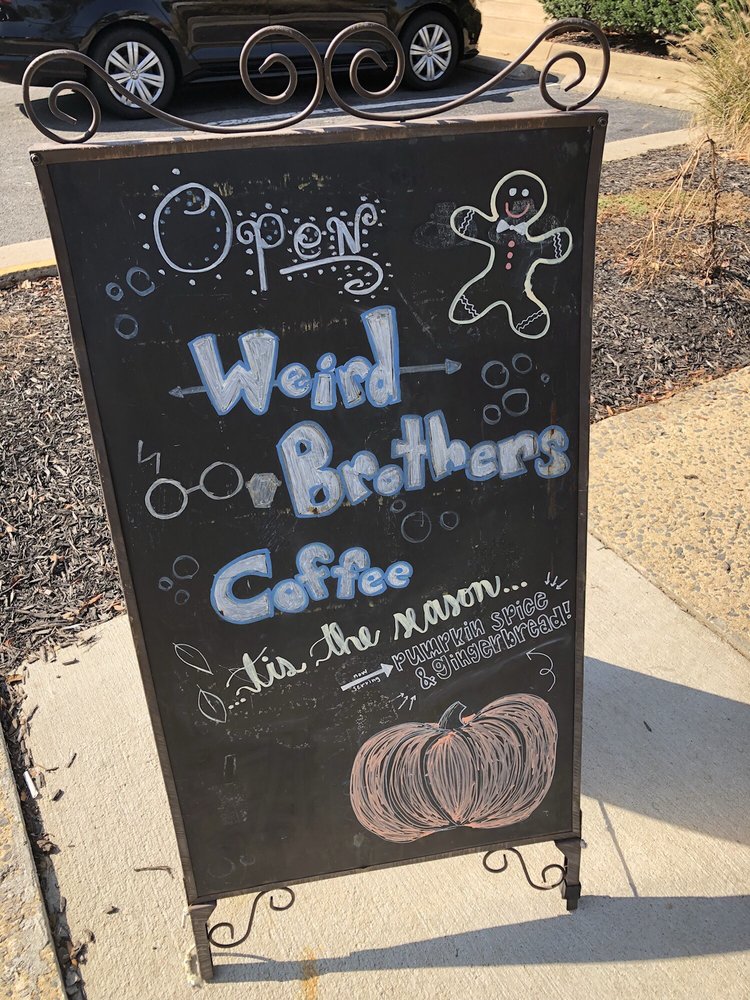 Open
Weird
Brothers
Coffee
...'tis the season...
now serving
pumpkin spice
& gingerbread!